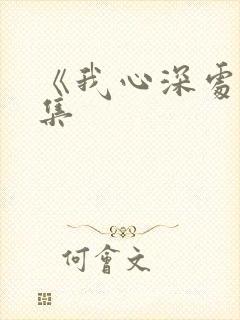 《我心深處
集
何會文